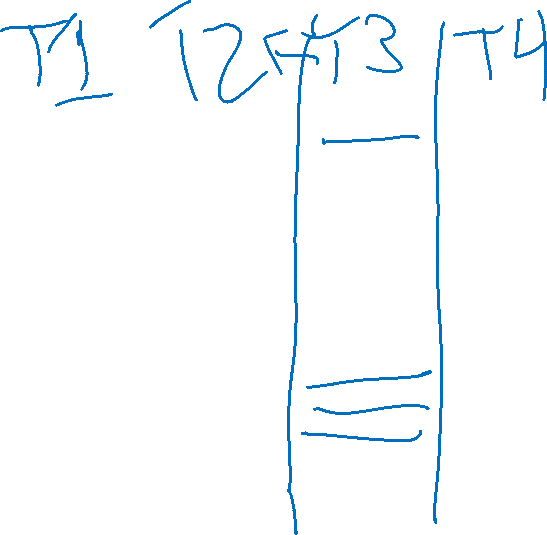 T1 T2 T3 T4